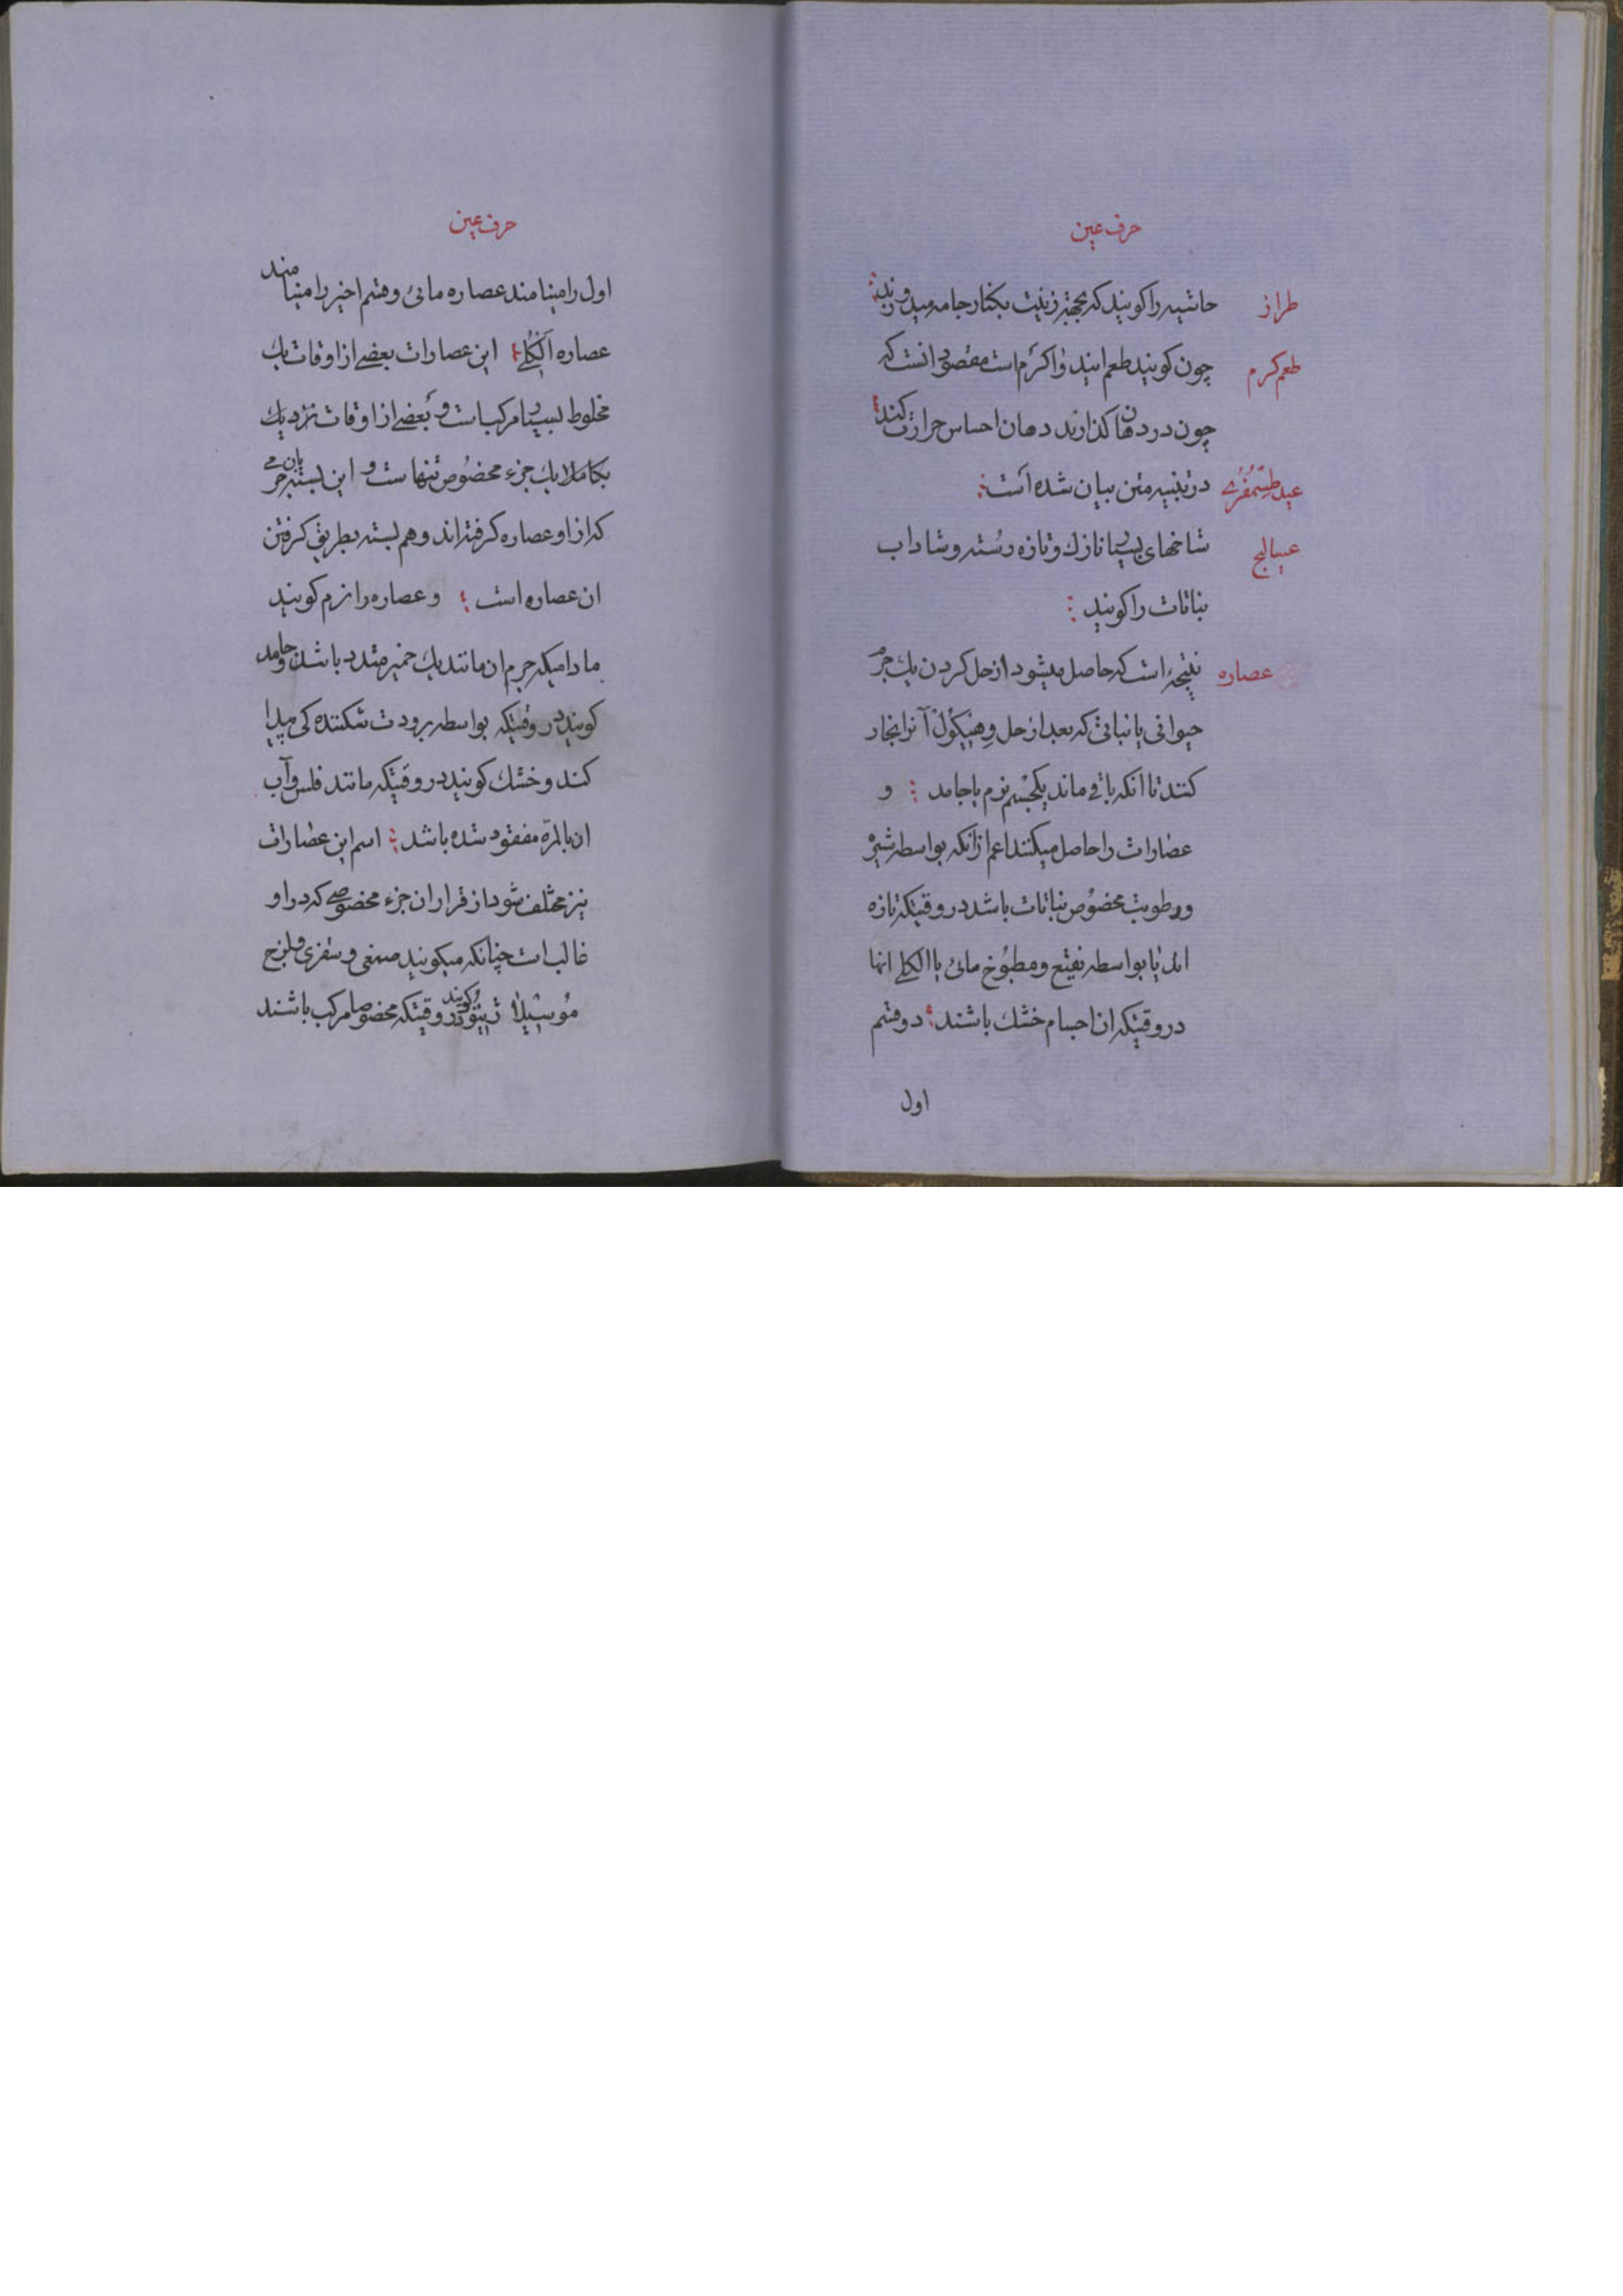 حرف عین
طراز حاشیه را کویند که بجهة زینت بکنار جامه میدوزند
طعم کرم چون کویند طعم ایندوا کرم است مقصود انست که
چون در دهان کذارند دهان احساس حرارت کند
در تنبیه متن بیان شده است
عسالیج شاخهای بسیار نازك و تازه رسته و شاداب
نباتات را کویند
عصاره نتیجهٔ است که حاصل میشود از حل کردن یك جزء
حیوانی یا نباتی که بعد از حل وهیکول آنرا بخار
کنند تا آنکه باقی ماند یکجسم نرم یا جامد و
عصارات را حاصل میکنند اعم ازانکه بواسطه شیره
ورطوبت مخصوص نباتات باشد در وقتیکه تازه
اند یا بواسطه نقیع و مطبوخ مائی یا الکلی انها
در وقتیکه ان اجسام خشك باشند دو قسم
اول
حرف عین
اول را مینامند عصاره مائی و قسم اخیر را مینامند
عصاره الکلی این عصارات بعضی از اوقات یك
مخلوط بسیار مرکب است و بعضی از اوقات نزدیك
بکاملا یك جزء مخصوص تنها است و این بسته بان جزء
که از او عصاره کرفته اند و هم بسته بطریق کرفتن
ان عصاره است و عصاره را نرم کویند
مادامیکه جرم ان مانند یك خمیر متدد باشد و جامد
کویند در وقتیکه بواسطه برودت شکننده کی پیدا
کند و خشك کویند در وقتیکه مانند فلس و آب
ان بالمرة مفقود شده باشد اسم این عصارات
نیز مختلف شود از قرار ان جزء مخصوصی که در او
غالب است چنانکه میکویند صمغی و سقزی و ملزج
در وقتیکه مخصوصا مرکب باشند